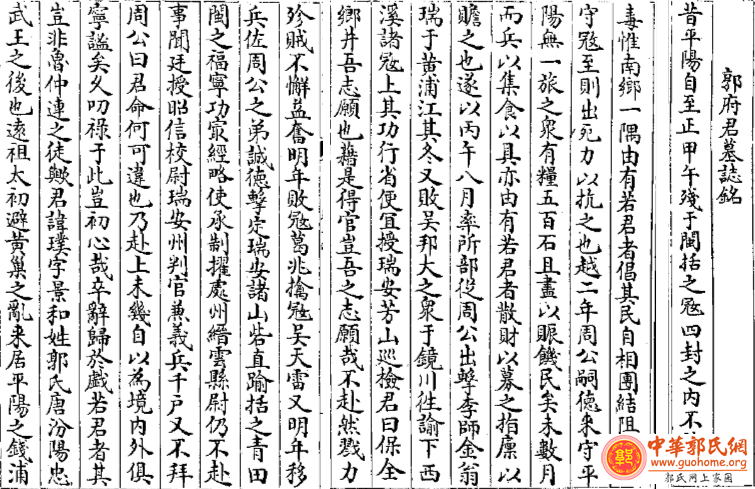 郭府君墓誌銘
昔平陽自至正甲午殘于閩括之寇四封之内不
毒惟南鄉一隅由有若君者倡其民自相團結阻
守寇至則出死力以抗之也越二年周公嗣德來守平
陽無一旅之衆有糧五百石且盡以賑饑民矣未數月
而兵以集食以具亦由有若君者散財以募之指廩以
贍之也遂以丙午八月率所部從周公出擊李師金翁
瑞于黄浦江其冬又敗吴邦大之衆于鏡川徃諭下西
溪諸寇上其功行省便宜授瑞安芳山巡檢君曰保全
鄉井吾志願也藉是得官豈吾之志願哉不赴然戮力
殄賊不懈益奮明年敗寇葛兆擒寇吴天雷又明年移
兵佐周公之弟誠德擊定瑞安諸山砦直踰括之青田
閩之福寧功㝡經略使承制擢處州縉雲縣尉仍不赴
事聞廷授昭信校尉瑞安州判官兼義兵千户又不拜
周公曰君命何可違也乃赴上未幾自以為境内外俱
寧謐矣久叨祿于此豈初心哉卒辭歸於戲若君者其
豈非魯仲連之徒歟君諱璞字景和姓郭氏唐汾陽忠
武王之後也遠祖太初避黄巢之亂来居平陽之錢浦
中華郭氏網
www.guohome.org
郭氏网上家园